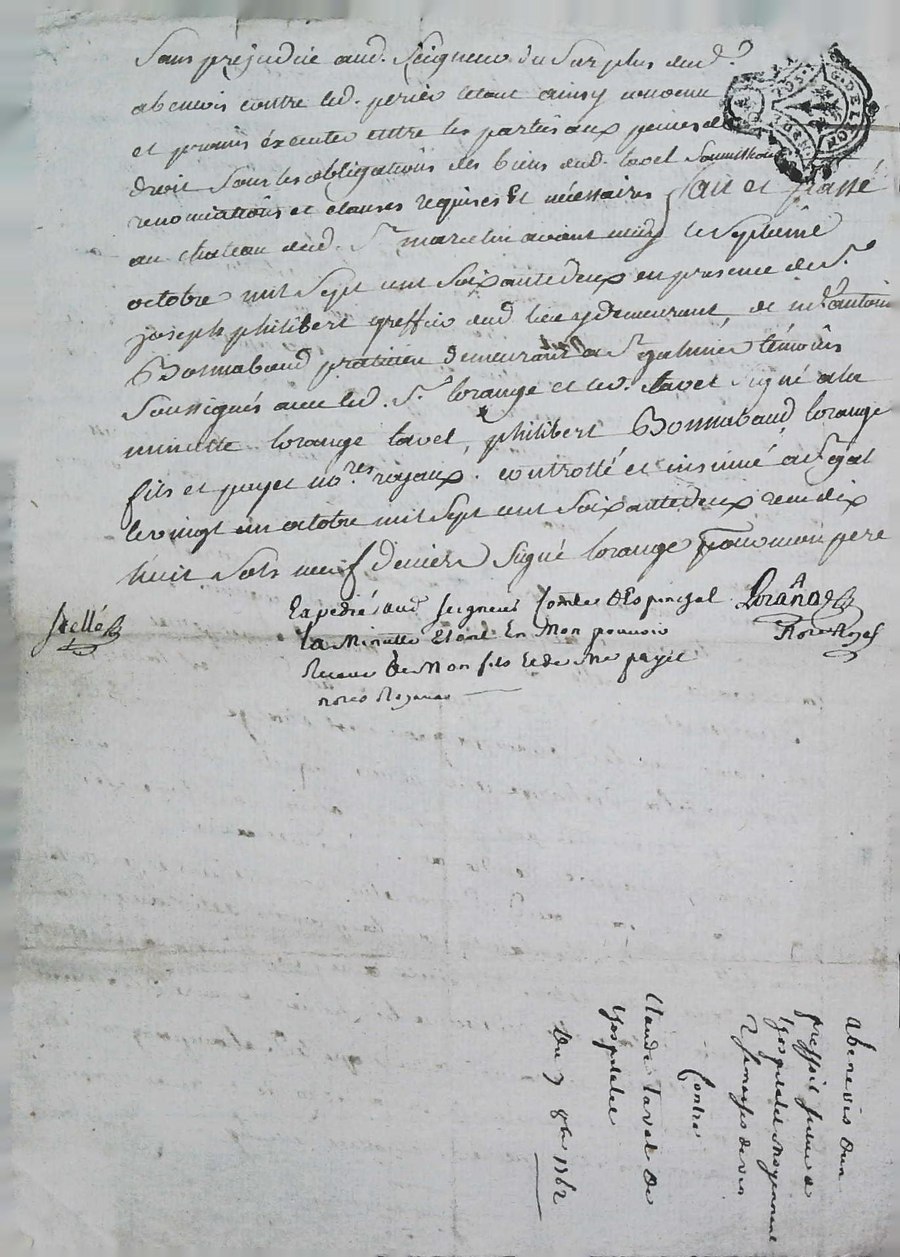 Sans préjudice aud. Seigneur du Surplus dud.
abenevis contre led. perier letout ainsy convenu
et promis éxecuter entre les parties aux peines de
droit Sous les obligations des biens dud. tavel Soumissions
renonciations et clauses requises Et nécessaires fait et passé
au chateau dud. St marcelin avant midy le Septième
octobre mil Sept cent Soixante deux en presence de Sr
joseph philibert greffier dud lieu y demeurant, de me antoine
Bonnabaud praticien demeurant a St galmier témoins
Soussignés avec led. Sr lorange et led. tavel Signé a la
minutte lorange tavel, philibert Bonnabaud, lorange
fils et payet nores royaux. controllé et insinué a St gal
le vingt un octobre mil Sept cent Soixante deux recu dix
huit Sols neuf deniers Signé lorange pour mon pere
Expedié aud Seigneur Comte d'Espinchal Lorange
Scellé la Minutte Etant En Mon pouvoir Nore Royal
Receue de Mon fils et de Me payet
nores Royaux
Abenevis d'un
pressoir
Moyennant
de vin
Contre
Claude tavel de
l'hospitalet
Du 7 8bre 1762